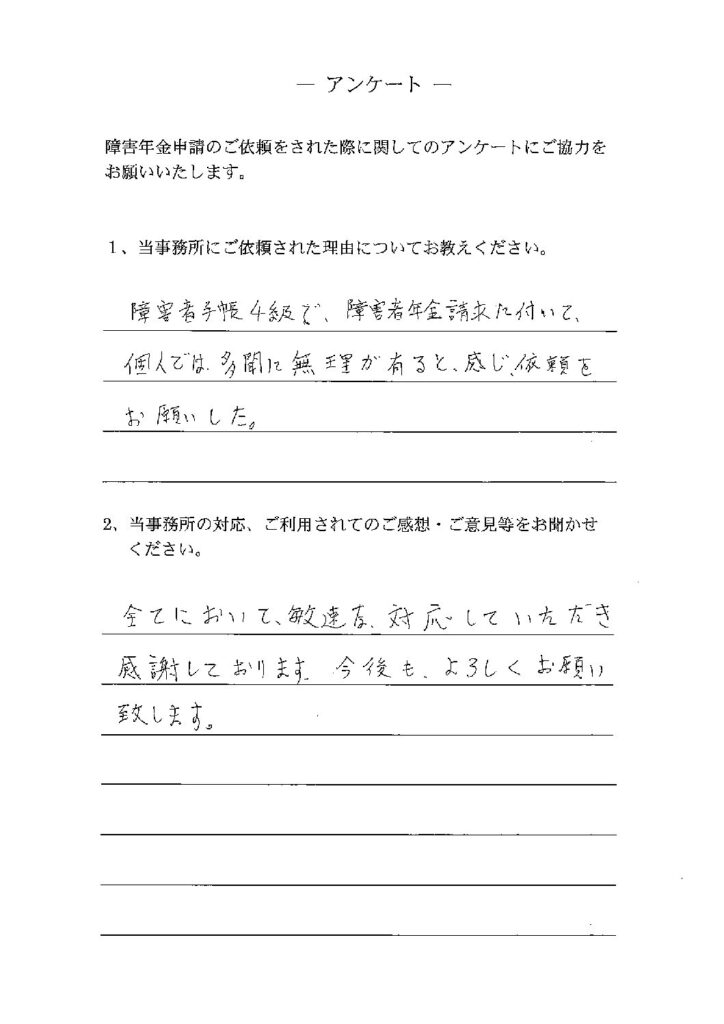 ― アンケート ―
障害年金申請のご依頼をされた際に関してのアンケートにご協力を
お願いいたします。
1、当事務所にご依頼された理由についてお教えください。
障害者手帳4級で、障害者年金請求に付いて、
個人では、多聞に無理が有ると、感じ、依頼を
お願いした。
2、当事務所の対応、ご利用されてのご感想・ご意見等をお聞かせ
ください。
全てにおいて、敏速な、対応していただき
感謝しております。今後も、よろしくお願い
致します。